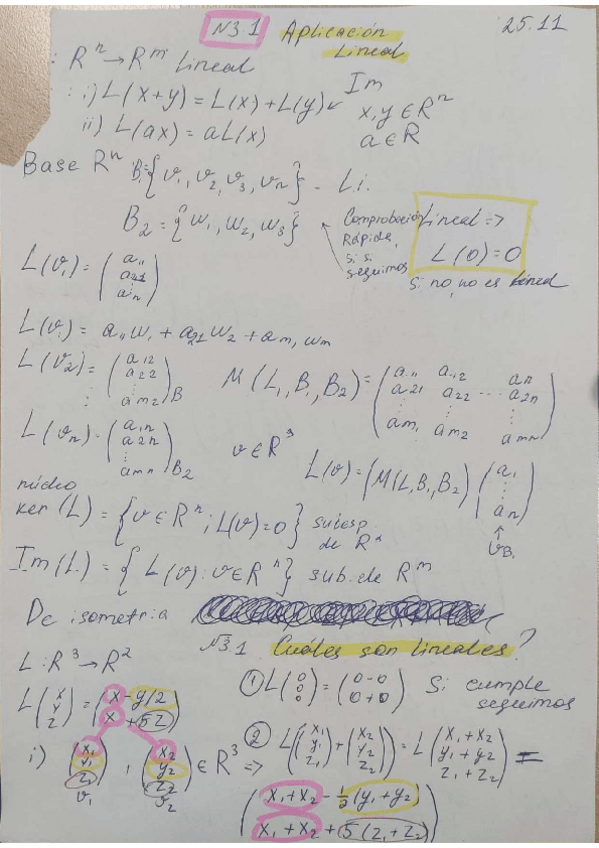 N3.1 Aplicación Lineal 25.11
: Rⁿ → Rᵐ lineal
: i) L(x+y) = L(x) + L(y)
Im
x, y ∈ Rⁿ
ii) L(ax) = aL(x)
a ∈ R
Base Rⁿ B: {v₁, v₂, v₃, vₙ} - L.i.
B₂ = {w₁, w₂, w₃}
Comprobación
Rápida,
si si
seguimos
Lineal =>
L(0) = 0
Si no, no es lineal
L(v₁) = (a₁₁ a₂₁ ⋮ aᵢₙ)
L(vᵢ) = a₁₁w₁ + a₂₁w₂ + aₘ₁wₘ
L(v₂) = (a₁₂ a₂₂ ⋮ aₘ₂)B
M(L, B₁, B₂) = (a₁₁ a₁₂ aₙ
a₂₁ a₂₂ ... a₂ₙ
⋮ ⋮ ⋮
aₘ₁ aₘ₂ aₘₙ)
⋮
L(vₙ) = (a₁ₙ a₂ₙ ⋮ aₘₙ)B₂
v ∈ R³
L(v) = (M(L, B₁, B₂)) (a₁ ⋮ aₙ)
↑
v_B₁
núcleo
Ker(L) = {v ∈ Rⁿ; L(v) = 0} subesp. de Rⁿ
Im(L) = {L(v): v ∈ Rⁿ} sub. de Rᵐ
De isometria
N3.1 Cuáles son lineales?
L: R³ → R²
L(x y z) = (x - y/2
x + 5z)
① L(0 0 0) = (0-0
0+0) Si cumple
seguimos
i) (x₁ y₁ z₁) , (x₂ y₂ z₂) ∈ R³ =>
v₁ v₂
② L(x₁ y₁ z₁) + (x₂ y₂ z₂) = L(x₁+x₂
y₁+y₂
z₁+z₂) =
(x₁+x₂ - ½(y₁+y₂)
x₁+x₂ + 5(z₁+z₂))